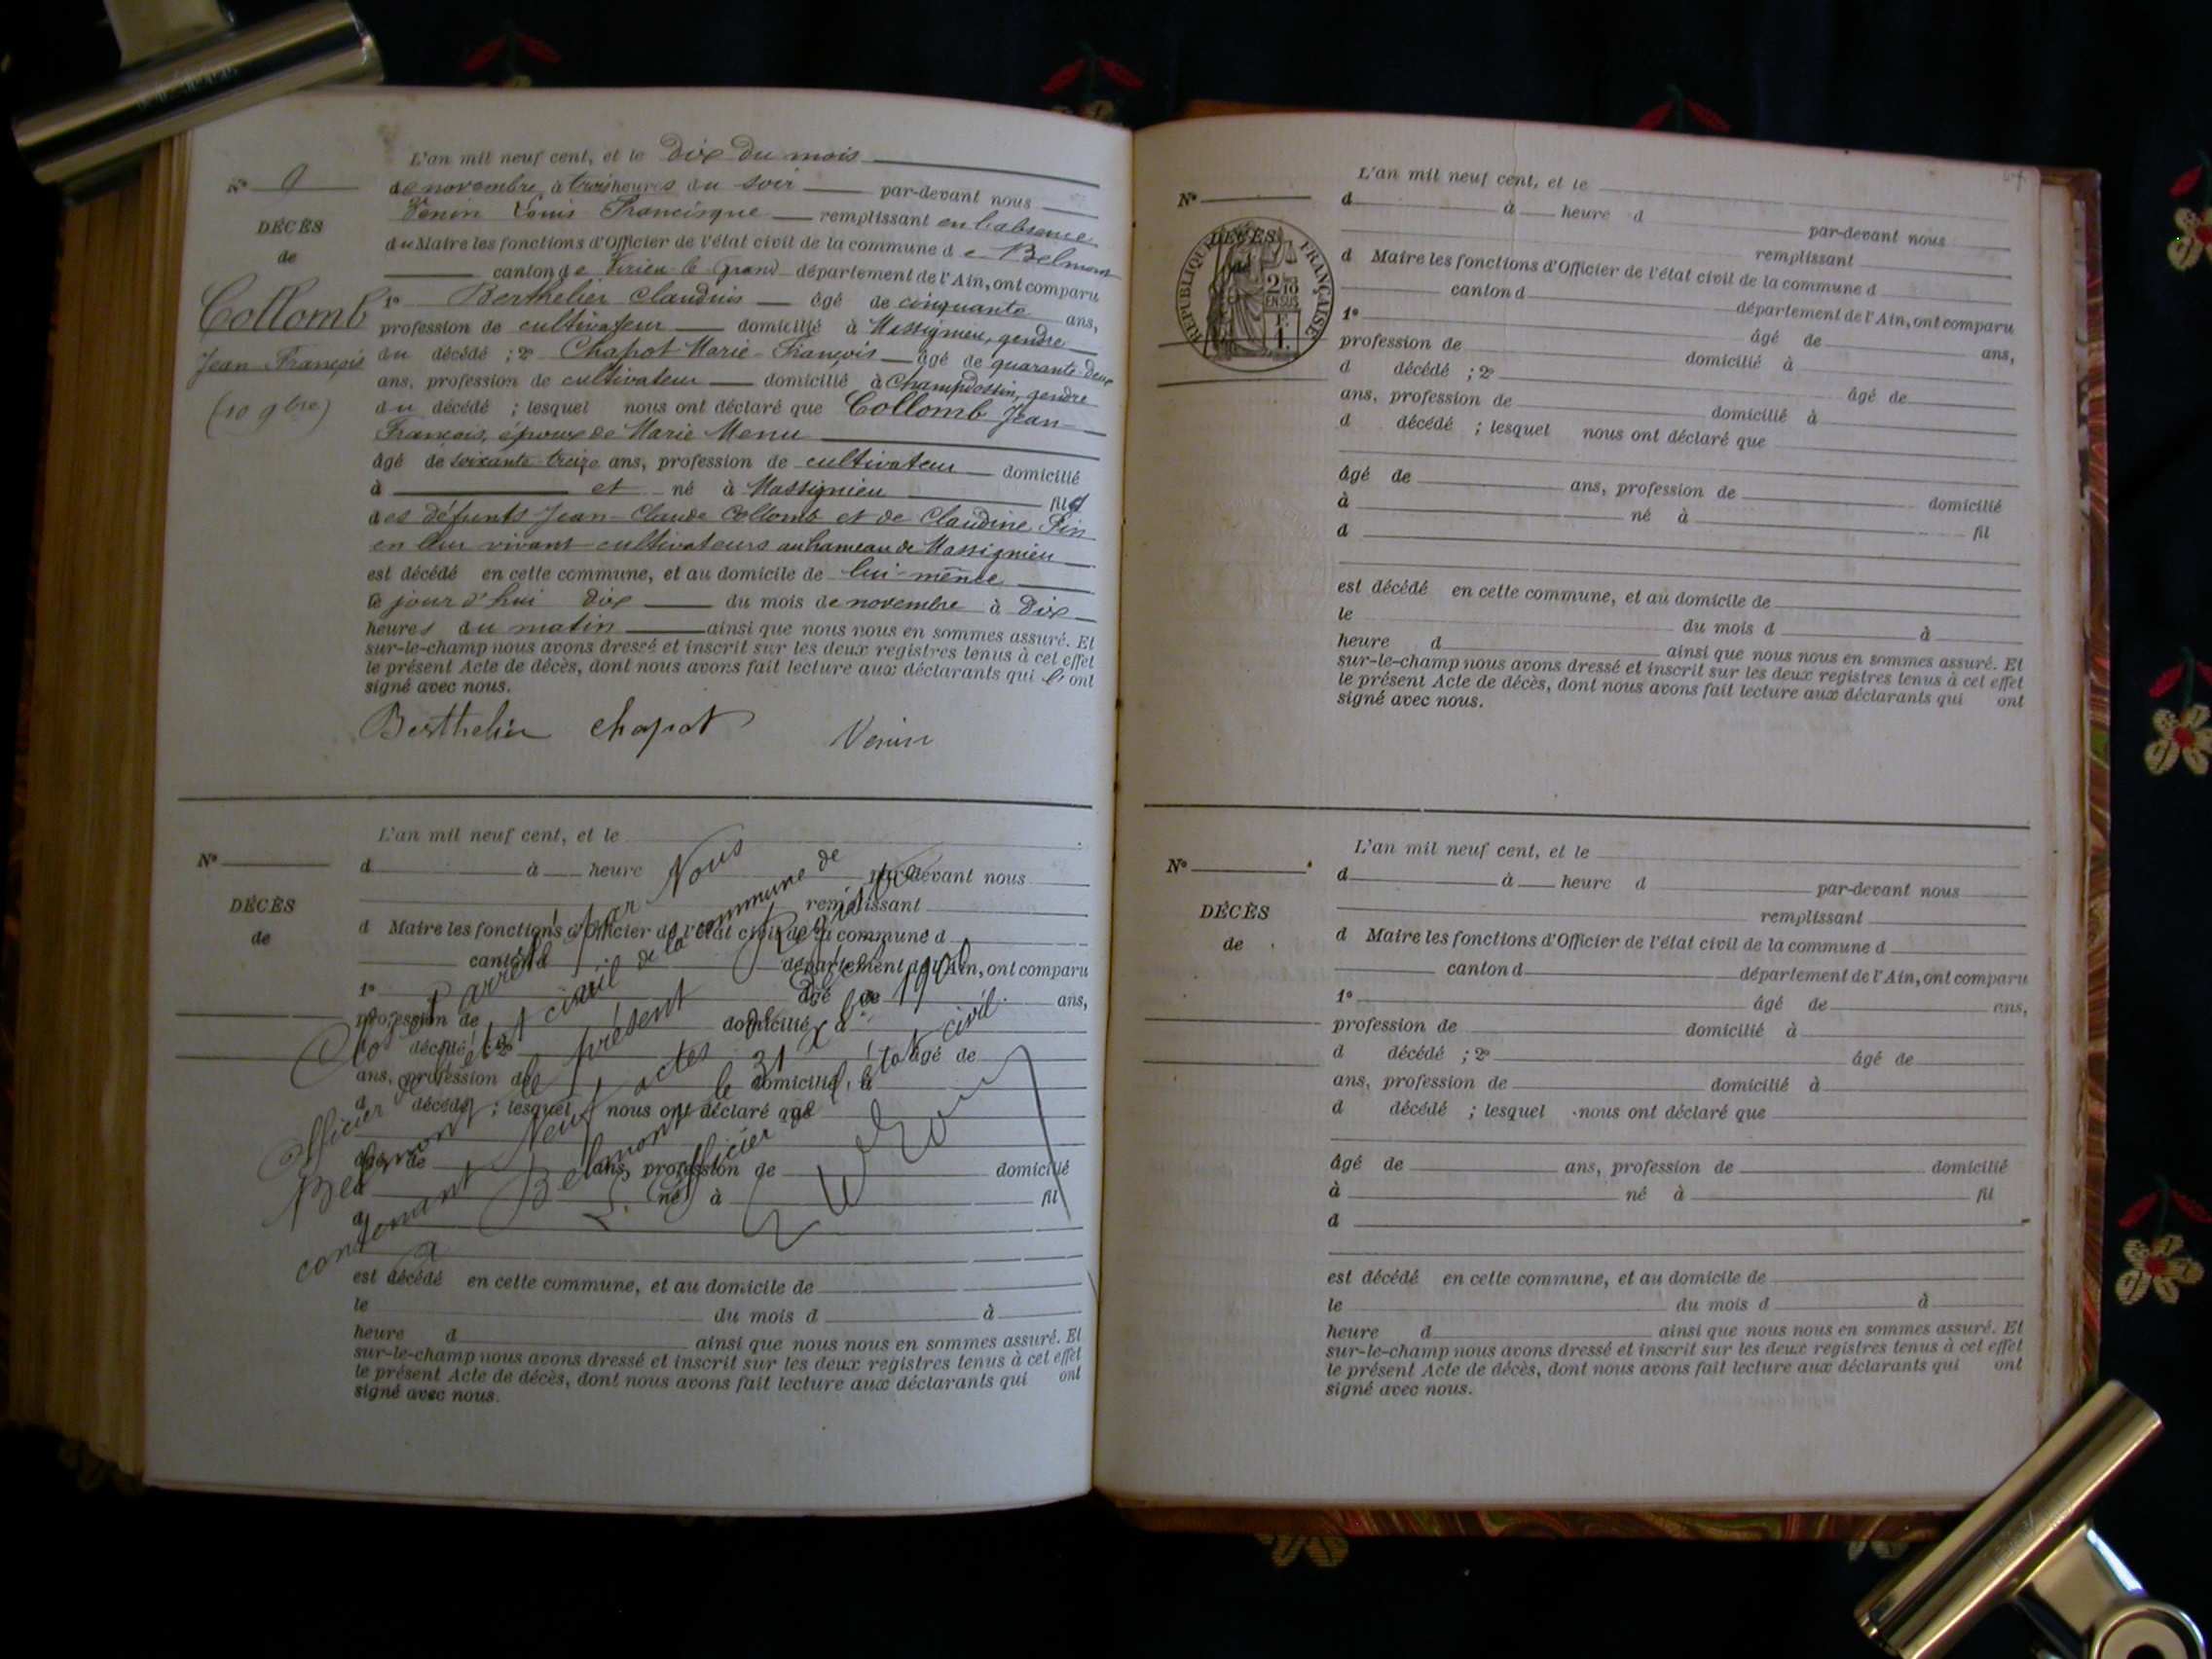 L'an mil neuf cent, et le Dix du mois
N° 9
de novembre à trois heures du soir par-devant nous
Venin Louis Francisque remplissant en l'absence
DÉCÈS
du Maire les fonctions d'Officier de l'état civil de la commune de Belmont
de
canton de Virieu le Grand département de l'Ain, ont comparu
Collomb
1° Berthelier Claudius âgé de cinquante ans,
profession de cultivateur domicilié à Massignieu, gendre
Jean François
du décédé ; 2° Chapot Marie-François âgé de quarante-deux
ans, profession de cultivateur domicilié à Champdossin, gendre
(10 9bre)
du décédé ; lesquel nous ont déclaré que Collomb Jean
François, époux de Marie Menu
âgé de soixante-treize ans, profession de cultivateur domicilié
à et né à Massignieu fils
des défunts Jean-Claude Collomb et de Claudine Pin
en leur vivant cultivateurs au hameau de Massignieu
est décédé en cette commune, et au domicile de lui-même
le jour d'hui dix du mois de novembre à Dix
heures du matin ainsi que nous nous en sommes assuré. Et
sur-le-champ nous avons dressé et inscrit sur les deux registres tenus à cet effet
le présent Acte de décès, dont nous avons fait lecture aux déclarants qui ont
signé avec nous.
Berthelier Chapot Venin
L'an mil neuf cent, et le
N°
d à heure par-devant nous
DÉCÈS
remplissant
de
d Maire les fonctions d'Officier de l'état civil de la commune d
canton d département de l'Ain, ont comparu
1° âgé de ans,
profession de domicilié à
d décédé ; 2° âgé de
ans, profession de domicilié à
d décédé ; lesquel nous ont déclaré que
âgé de ans, profession de domicilié
à né à fil
d
est décédé en cette commune, et au domicile de
le du mois d à
heure d ainsi que nous nous en sommes assuré. Et
sur-le-champ nous avons dressé et inscrit sur les deux registres tenus à cet effet
le présent Acte de décès, dont nous avons fait lecture aux déclarants qui ont
signé avec nous.
Clos et arrêté par Nous
officier de l'état civil de la commune de
Belmont, le présent Registre
contenant Neuf actes
à Belmont le 31 Xbre 1900
L'officier de l'état civil.
L'an mil neuf cent, et le
N°
d à heure d par-devant nous
DÉCÈS
RÉPUBLIQUE FRANÇAISE
2/10
EN SUS
remplissant
d Maire les fonctions d'Officier de l'état civil de la commune d
canton d département de l'Ain, ont comparu
1° âgé de ans,
profession de domicilié à
d décédé ; 2° âgé de
ans, profession de domicilié à
d décédé ; lesquel nous ont déclaré que
âgé de ans, profession de domicilié
à né à fil
d
est décédé en cette commune, et au domicile de
le du mois d à
heure d ainsi que nous nous en sommes assuré. Et
sur-le-champ nous avons dressé et inscrit sur les deux registres tenus à cet effet
le présent Acte de décès, dont nous avons fait lecture aux déclarants qui ont
signé avec nous.
L'an mil neuf cent, et le
N°
d à heure d par-devant nous
DÉCÈS
remplissant
de
d Maire les fonctions d'Officier de l'état civil de la commune d
canton d département de l'Ain, ont comparu
1° âgé de ans,
profession de domicilié à
d décédé ; 2° âgé de
ans, profession de domicilié à
d décédé ; lesquel nous ont déclaré que
âgé de ans, profession de domicilié
à né à fil
d
est décédé en cette commune, et au domicile de
le du mois d à
heure d ainsi que nous nous en sommes assuré. Et
sur-le-champ nous avons dressé et inscrit sur les deux registres tenus à cet effet
le présent Acte de décès, dont nous avons fait lecture aux déclarants qui ont
signé avec nous.